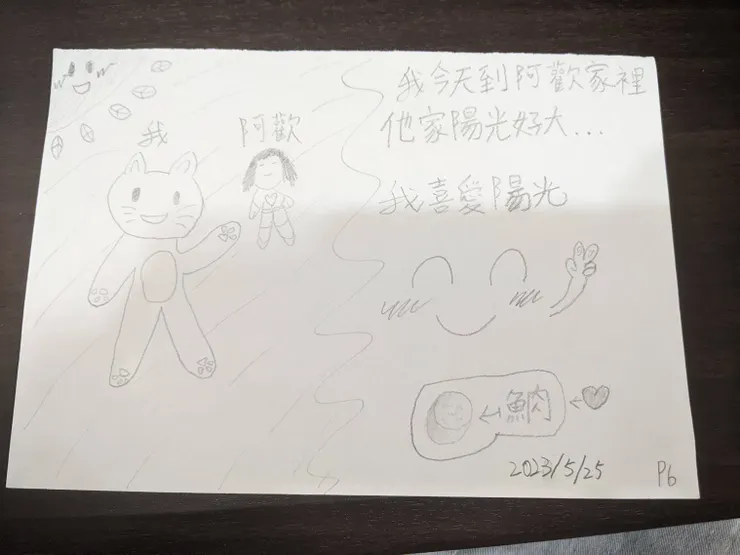 我
阿歡
我今天到阿歡家裡
他家陽光好大...
我喜愛陽光
魚肉
2023/5/25
P6